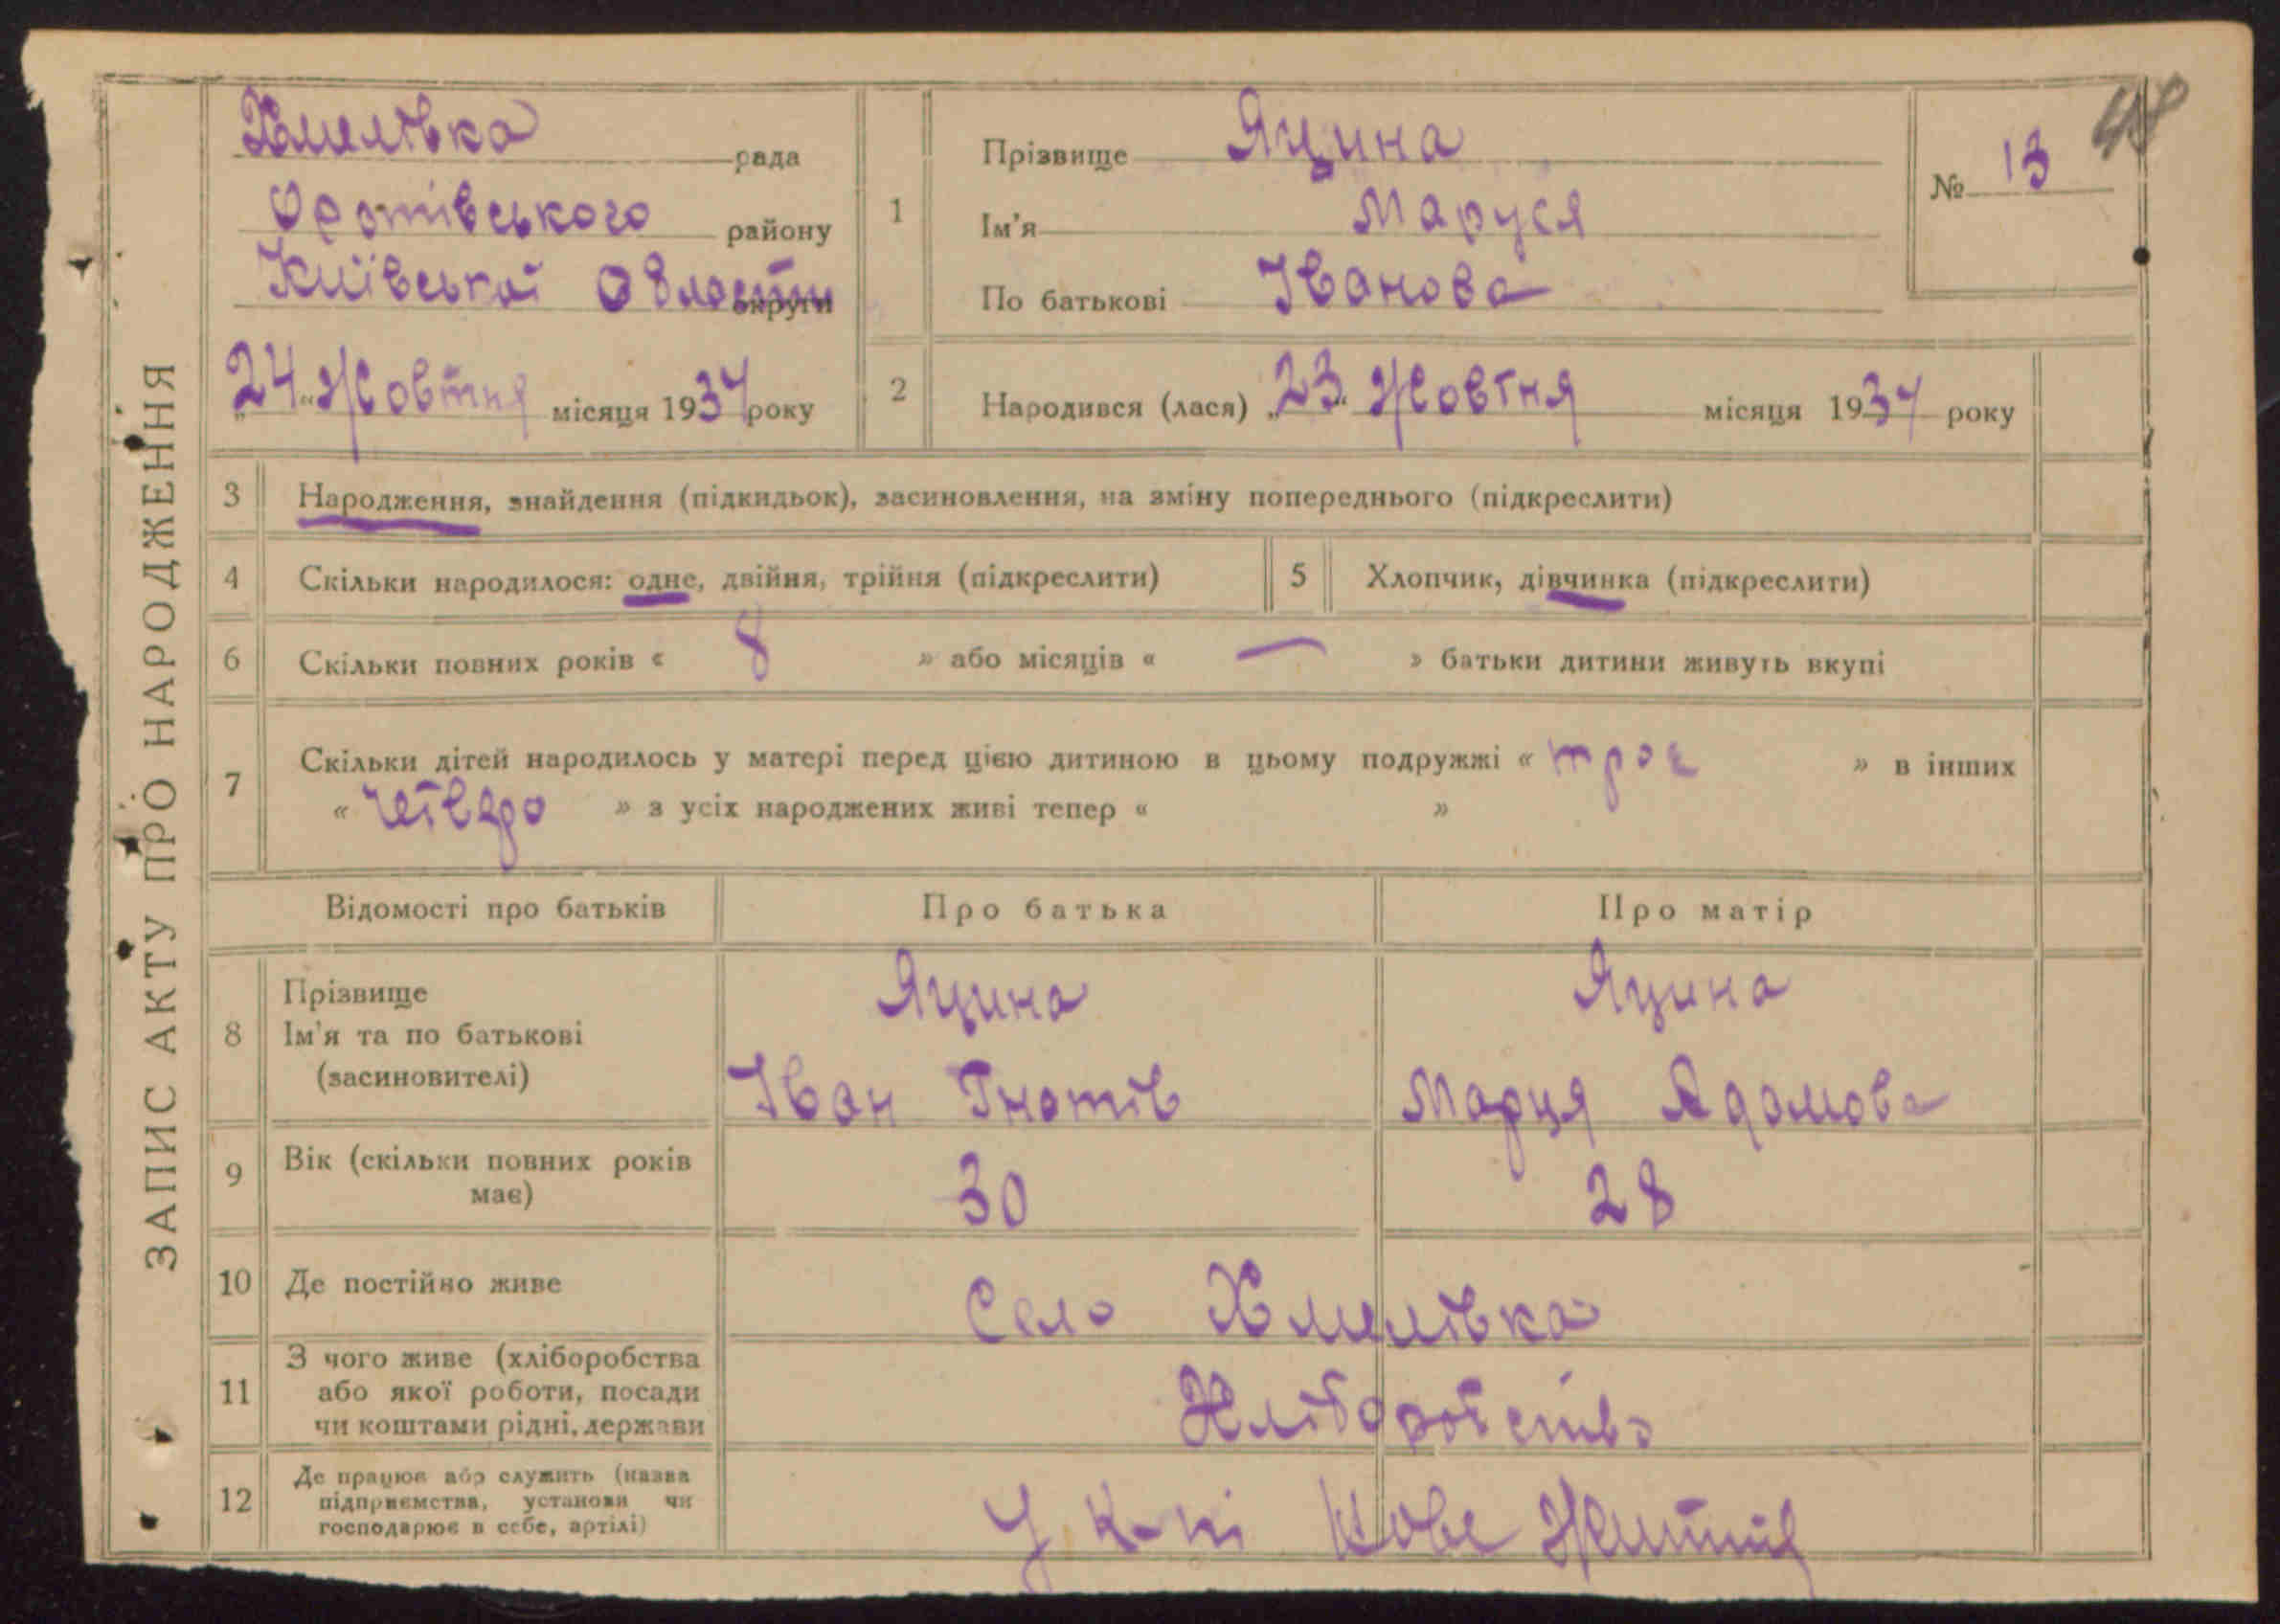 ЗАПИС АКТУ ПРО НАРОДЖЕННЯ
Хмилівка рада
Оратівського району
Київської Области округи
„24“ Жовтня місяця 1934 року
1
Прізвище Яцина
Ім'я Маруся
По батькові Іванова
№ 13
48
2
Народився (лася) „23“ Жовтня місяця 1934 року
3 Народження, знайдення (підкидьок), засиновлення, на зміну попереднього (підкреслити)
4 Скільки народилося: одне, двійня, трійня (підкреслити)
5 Хлопчик, дівчинка (підкреслити)
6 Скільки повних років « 8 » або місяців « — » батьки дитини живуть вкупі
7 Скільки дітей народилось у матері перед цією дитиною в цьому подружжі « троє » в інших
« четверо » з усіх народжених живі тепер « »
Відомості про батьків Про батька Про матір
8 Прізвище Яцина Яцина
Ім'я та по батькові
(засиновителі) Іван Гнатів Марця Адамова
9 Вік (скільки повних років
має) 30 28
10 Де постійно живе Село Хмилівка
11 З чого живе (хліборобства
або якої роботи, посади
чи коштами рідні, держави Хліборобство
12 Де працює або служить (назва
підприємства, установи чи
господарює в себе, артілі) У к-пі Нове Життя